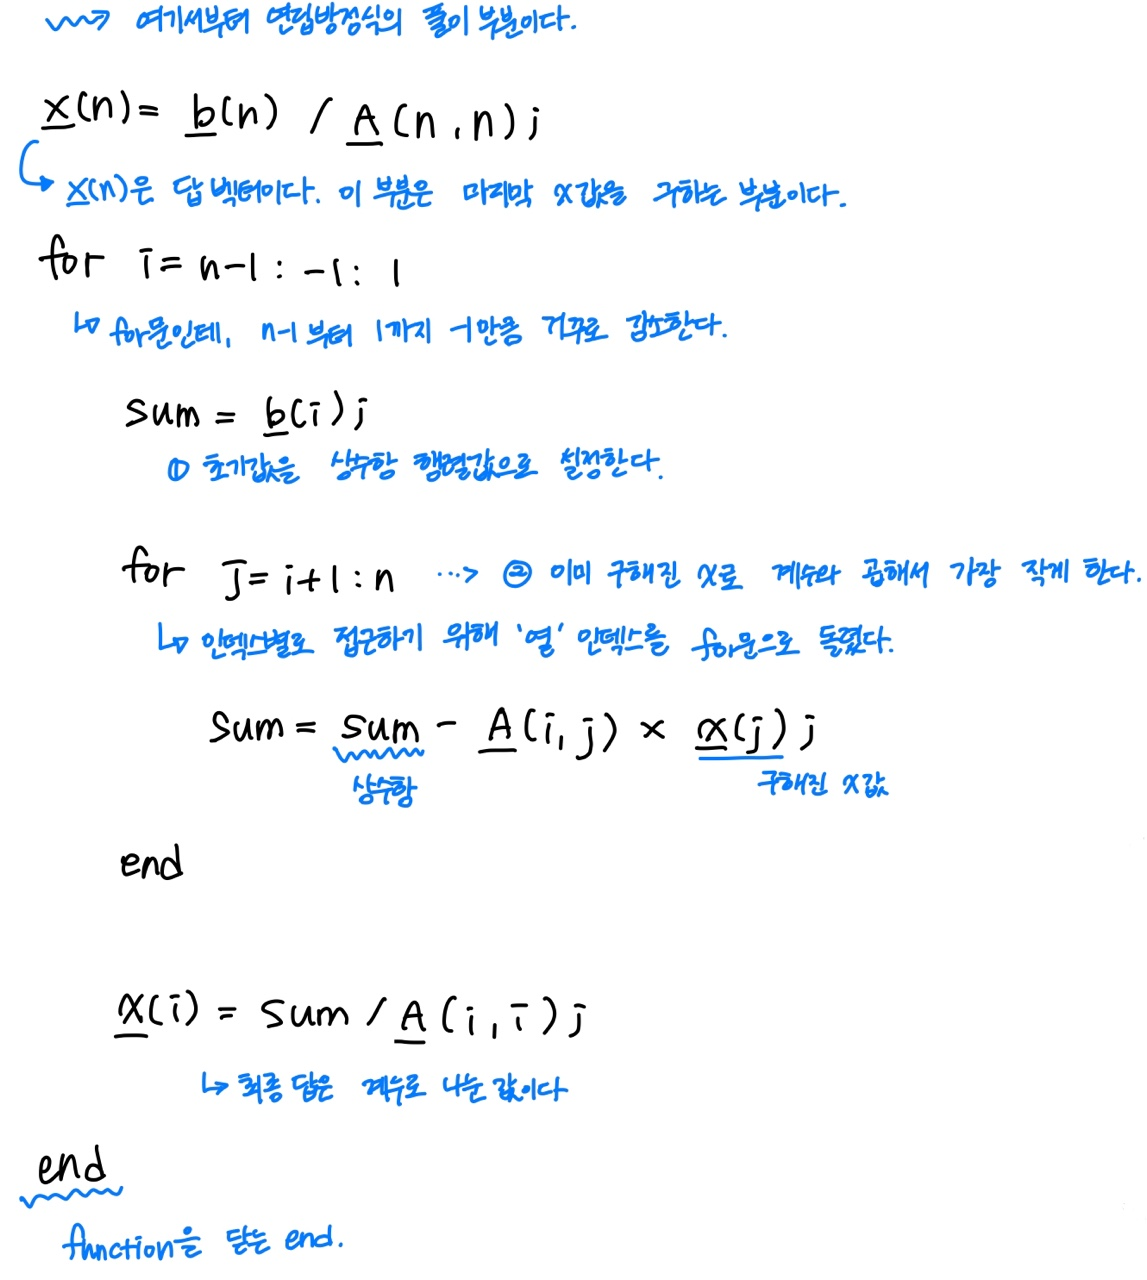 여기서부터 연립방정식의 풀이 부분이다.
x(n)= b(n) / A(n,n);
x(n)은 답 벡터이다. 이 부분은 마지막 x값을 구하는 부분이다.
for i= n-1 : -1 : 1
for문인데, n-1 부터 1까지 -1만큼 거꾸로 감소한다.
sum = b(i);
① 초기값을 상수항 행렬값으로 설정한다.
for j= i+1 : n ···> ② 이미 구해진 x로 계수와 곱해서 가장 작게 한다.
인덱스별로 접근하기 위해 '열' 인덱스를 for문으로 돌렸다.
sum = sum - A(i,j) × x(j);
상수항 구해진 x값
end
x(i) = sum / A(i,i);
최종 답은 계수로 나눈 값이다
end
function을 닫는 end.